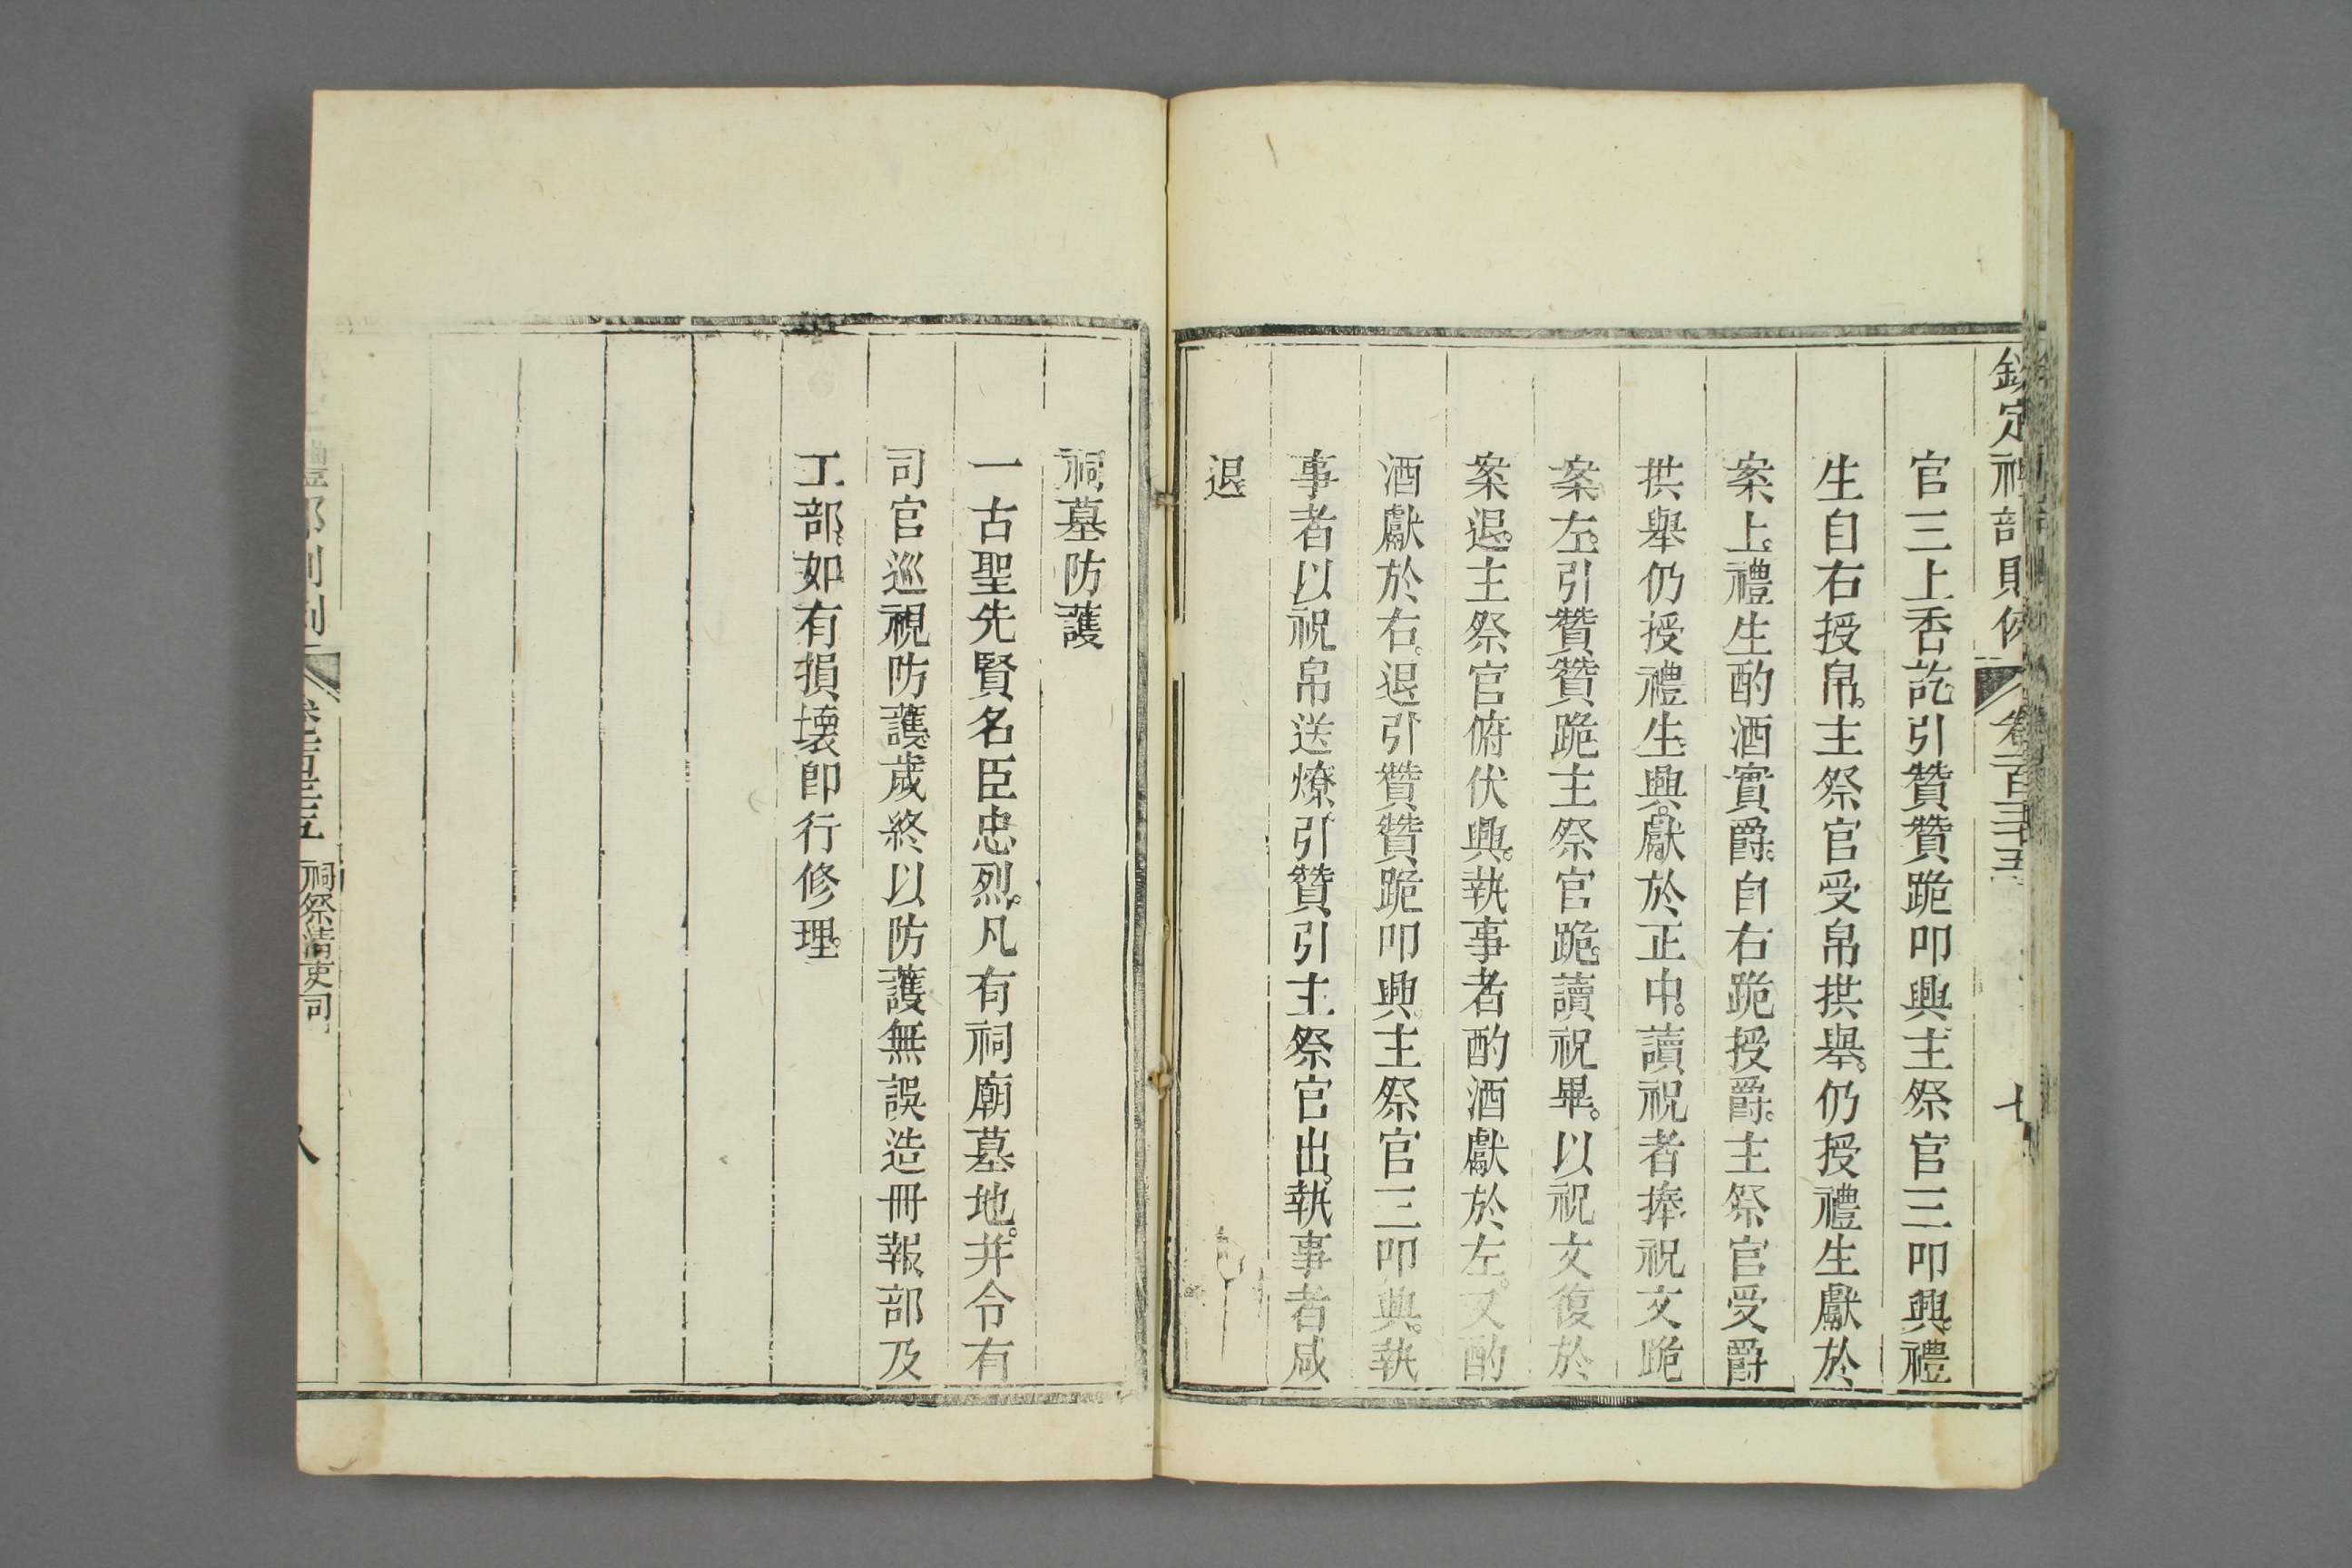 欽定禮部則例 卷一百三十五 七
官三上香訖引贊贊跪叩興主祭官三叩興。禮
生自右授帛。主祭官受帛拱舉。仍授禮生獻於
案上。禮生酌酒實爵。自右跪授爵。主祭官受爵
拱舉仍授禮生興。獻於正中。讀祝者捧祝文跪
案左。引贊贊跪主祭官跪。讀祝畢。以祝文復於
案退。主祭官俯伏興。執事者酌酒獻於左。又酌
酒獻於右。退引贊贊跪叩興。主祭官三叩興。執
事者以祝帛送燎。引贊引主祭官出。執事者咸
退
祠墓防護
一古聖先賢名臣忠烈。凡有祠廟墓地。并令有
司官巡視防護。歲終以防護無誤造冊報部及
工部。如有損壞卽行修理。
禮部則例 卷一百三十五 祠祭清吏司 八